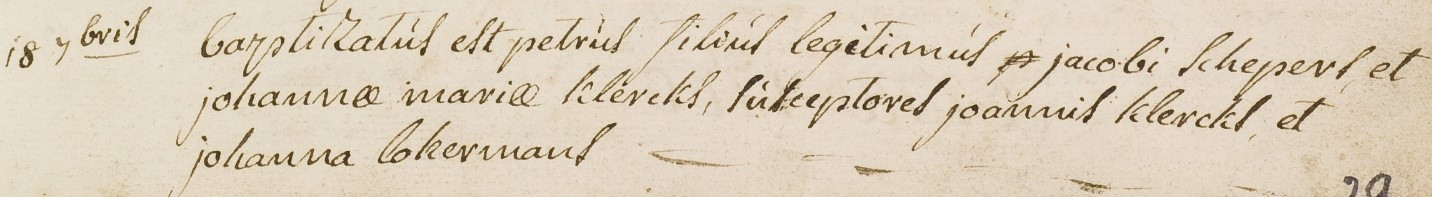 18 7bris baptizatus est petrus filius legitimus jacobi schepers, et
johannæ mariæ klercks, susceptores joannis klercks, et
johanna lokermans
29